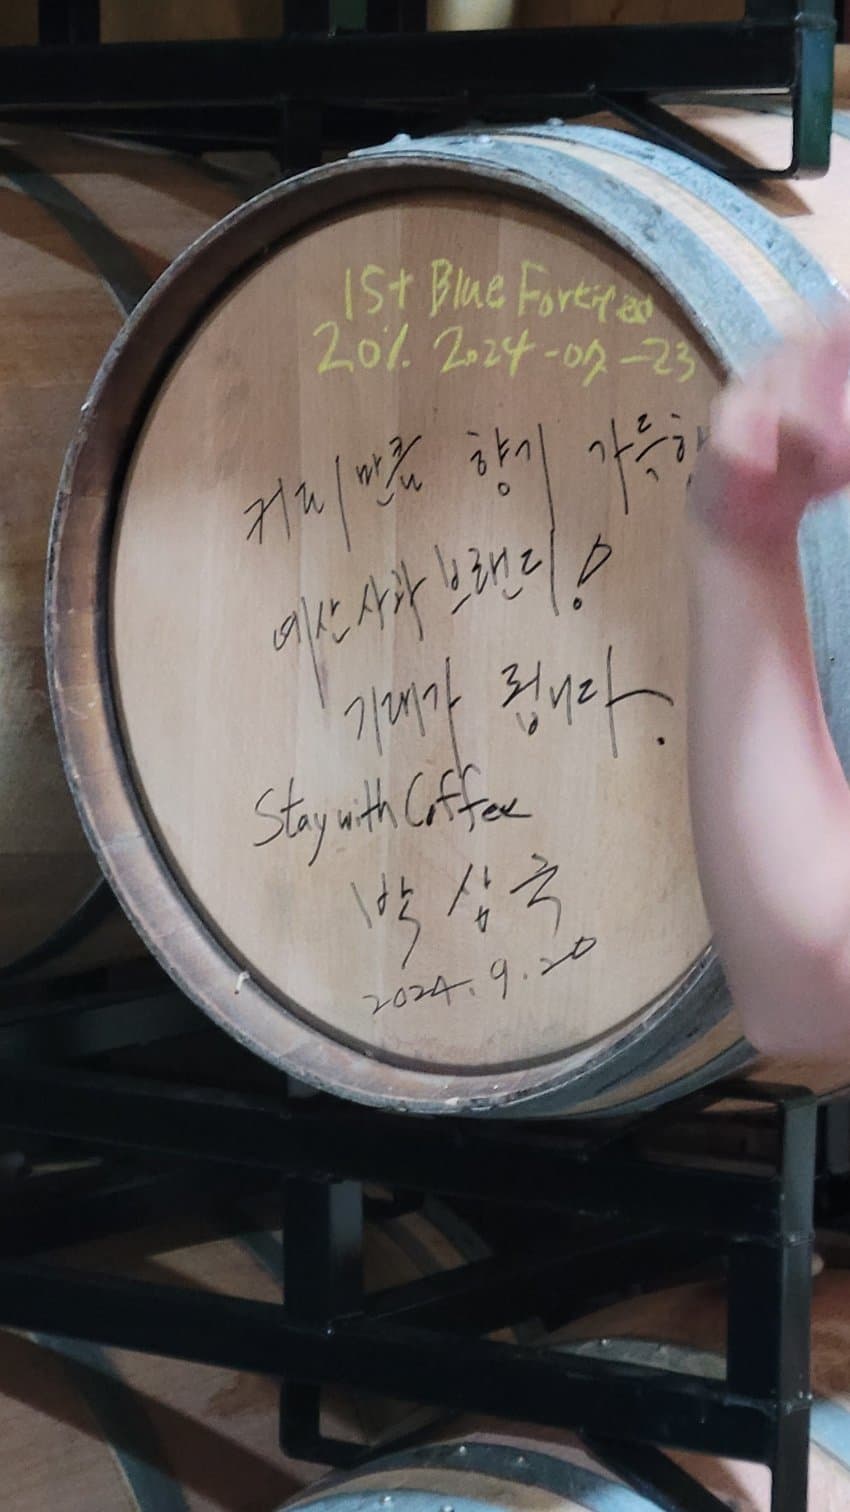 1st Blue Fortified
20% 2024-07-23
커피만큼 향기 가득한
예산사과브랜디!
기대가 됩니다.
Stay with Coffee
박상국
2024.9.20